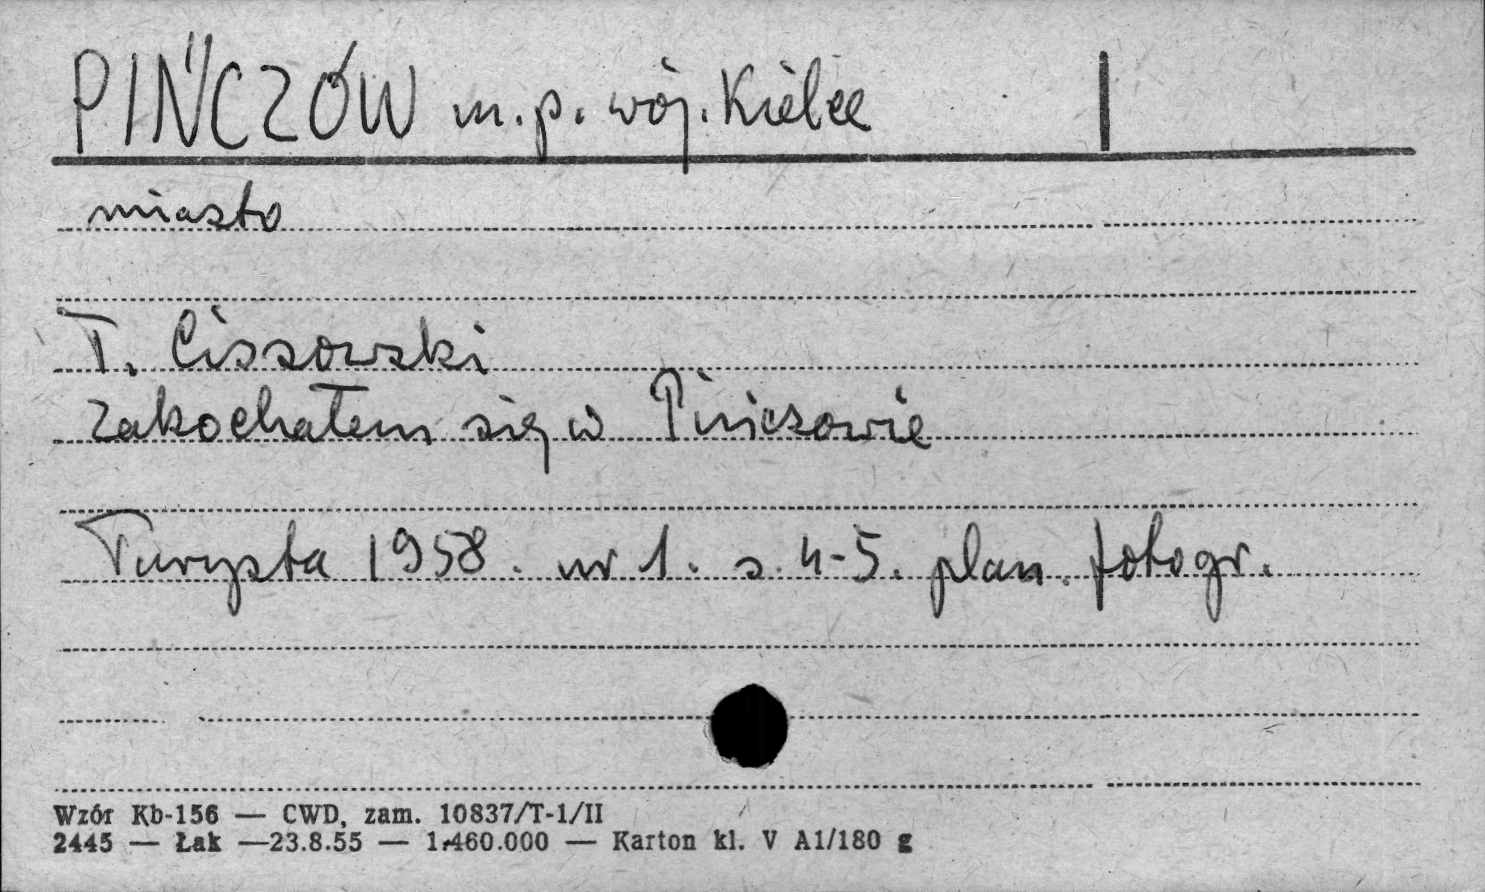 PIŃCZÓW m.p. woj. Kielce
miasto
T. Cissowski
Zakochałem się w Pińczowie
Turysta 1958. nr 1. s. 4-5. plan. fotogr.
Wzór Kb-156 — CWD, zam. 10837/T-1/II
2445 — Łak —23.8.55 — 1.460.000 — Karton kl. V A1/180 g